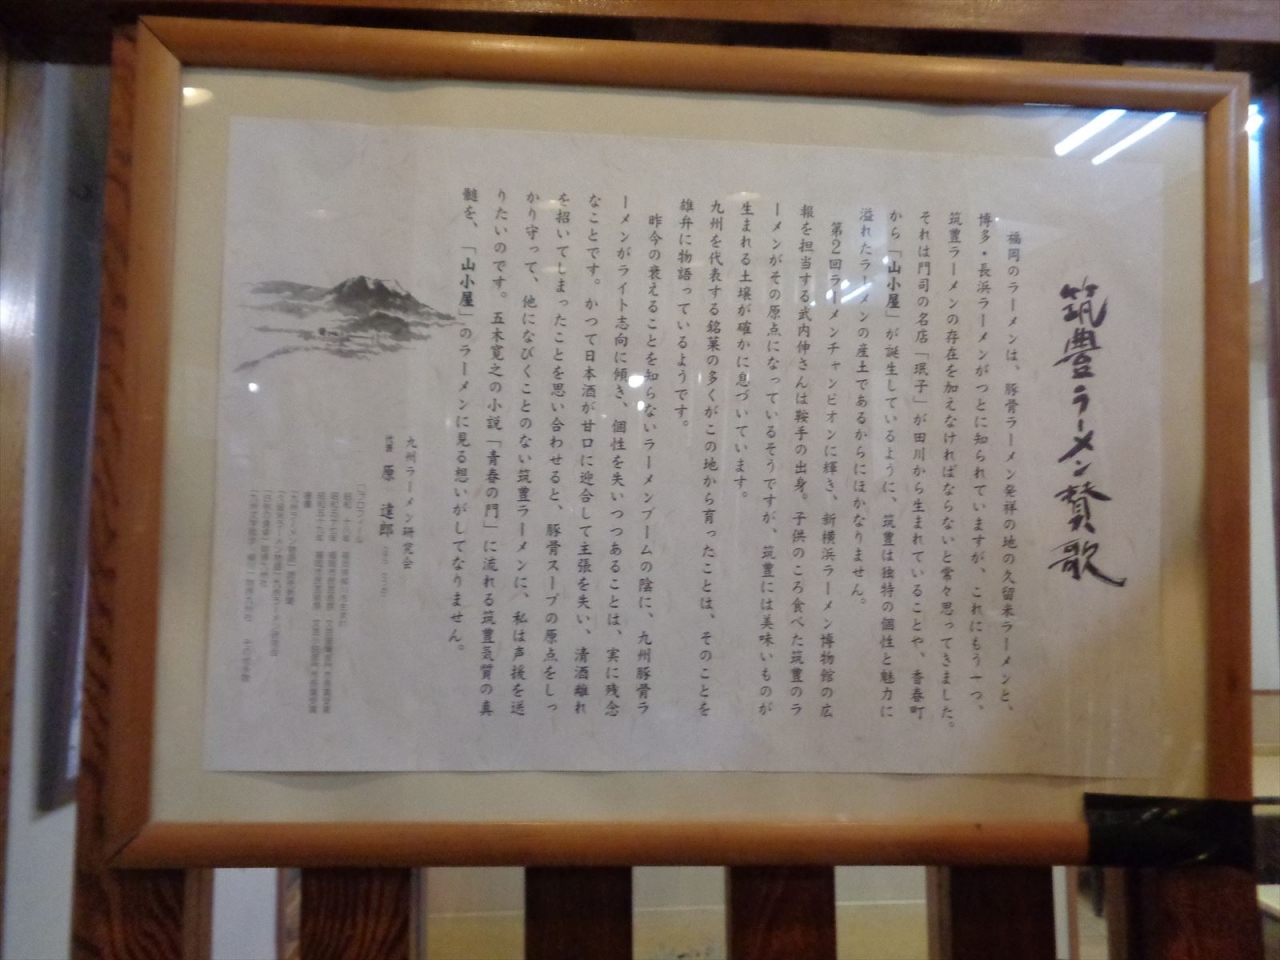 筑豊ラーメン賛歌
福岡のラーメンは、豚骨ラーメン発祥の地の久留米ラーメンと、
博多・長浜ラーメンがつとに知られていますが、これにもう一つ、
筑豊ラーメンの存在を加えなければならないと常々思ってきました。
それは門司の名店「珉子」が田川から生まれていることや、香春町
から「山小屋」が誕生しているように、筑豊は独特の個性と魅力に
溢れたラーメンの産土であるからにほかなりません。
第2回ラーメンチャンピオンに輝き、新横浜ラーメン博物館の広
報を担当する武内伸さんは鞍手の出身。子供のころ食べた筑豊のラ
ーメンがその原点になっているそうですが、筑豊には美味いものが
生まれる土壌が確かに息づいています。
九州を代表する銘菓の多くがこの地から育ったことは、そのことを
雄弁に物語っているようです。
昨今の衰えることを知らないラーメンブームの陰に、九州豚骨ラ
ーメンがライト志向に傾き、個性を失いつつあることは、実に残念
なことです。かつて日本酒が甘口に迎合して主張を失い、清酒離れ
を招いてしまったことを思い合わせると、豚骨スープの原点をしっ
かり守って、他になびくことのない筑豊ラーメンに、私は声援を送
りたいのです。五木寛之の小説「青春の門」に流れる筑豊気質の真
髄を、「山小屋」のラーメンに見る想いがしてなりません。
九州ラーメン研究会
代表 原 達郎